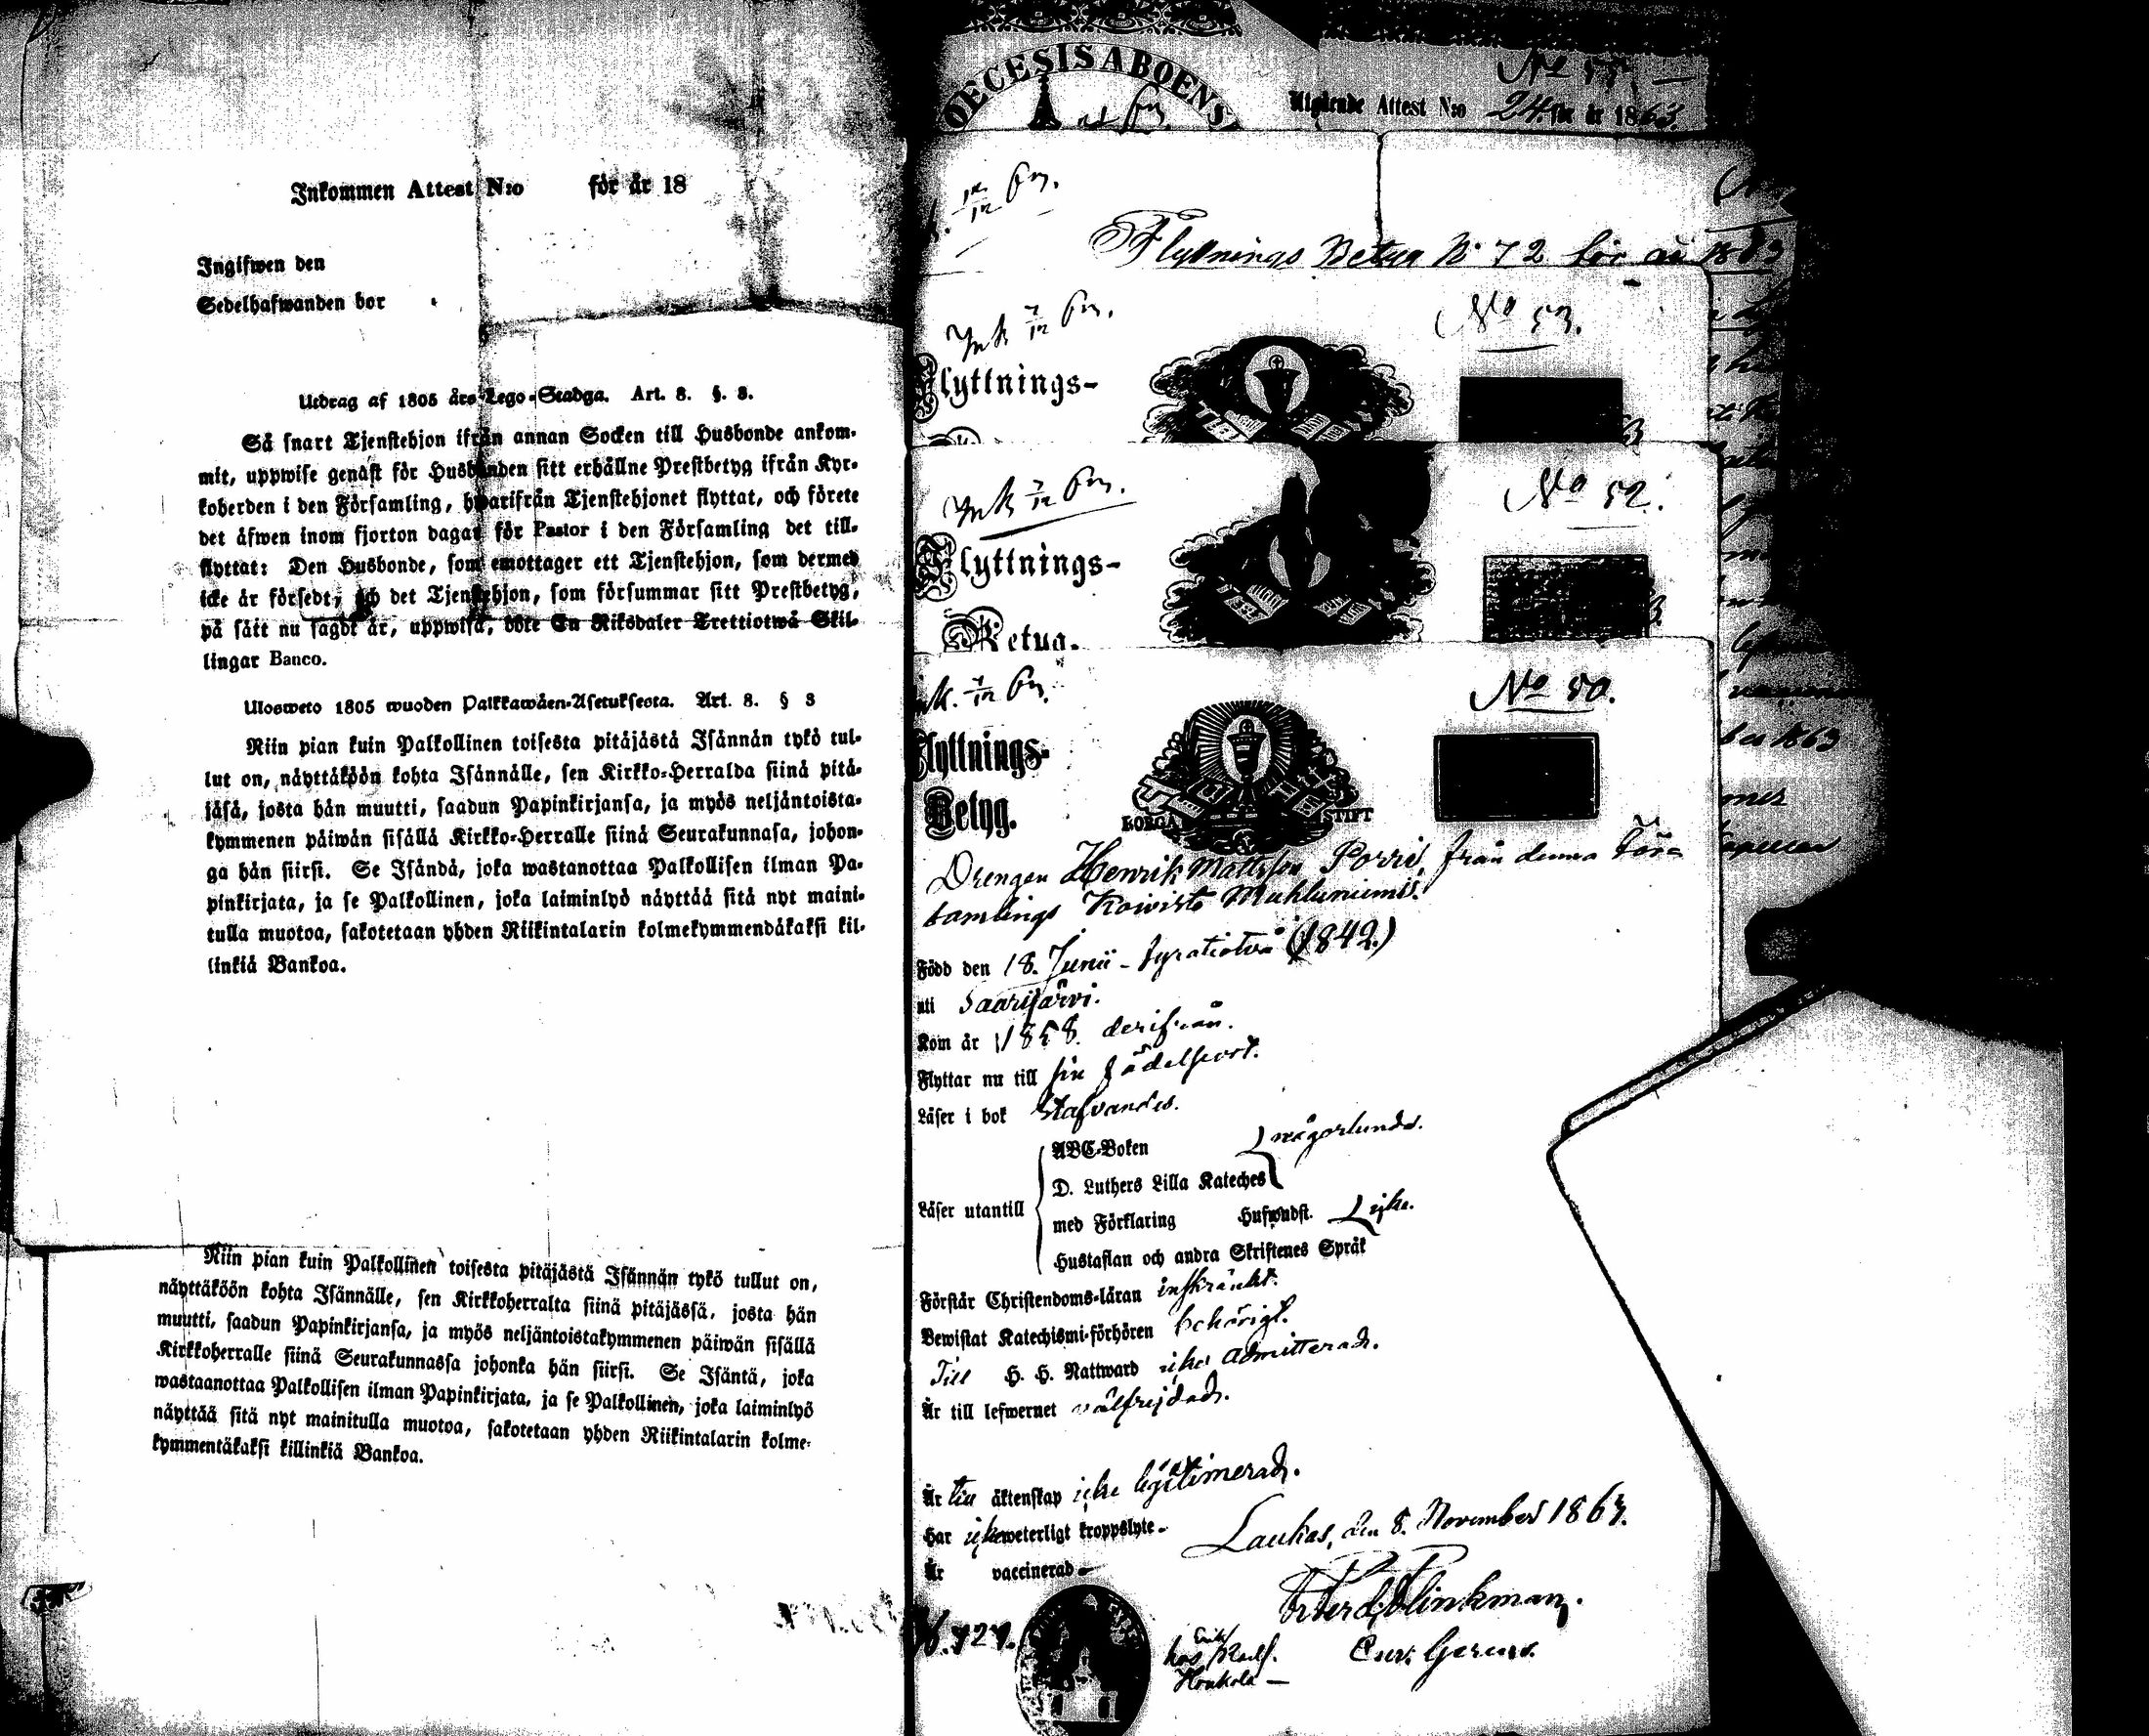 Inkommen Attest N:o för år 18
Ingifwen den
Sedelhafwanden bor
Utdrag af 1805 års Lego-Stadga. Art. 8. §. 3.
Så snart Tjenstehjon ifrån annan Socken till Husbonde ankom-
mit, uppwise genast för Husbonden sitt erhållne Prestbetyg ifrån Kyr-
koherden i den Församling, hwarifrån Tjenstehjonet flyttat, och förete
det äfwen inom fjorton dagar för Pastor i den Församling det till-
flyttat: Den Husbonde, som emottager ett Tjenstehjon, som dermed
icke är försedt, och det Tjenstehjon, som försummar sitt Prestbetyg,
på sätt nu sagdt är, uppwisa, böte En Riksdaler Trettiotwå Skil-
lingar Banco.
Ulosweto 1805 wuoden Palkkawäen-Asetuksesta. Art. 8. § 3
Niin pian kuin Palkollinen toisesta pitäjästä Isännän tykö tul-
lut on, näyttäköön kohta Isännälle, sen Kirkko-Herralda siinä pitä-
jäsä, josta hän muutti, saadun Papinkirjansa, ja myös neljäntoista-
kymmenen päiwän sisällä Kirkko-Herralle siinä Seurakunnasa, johon-
ga hän siirsi. Se Isändä, joka wastanottaa Palkollisen ilman Pa-
pinkirjata, ja se Palkollinen, joka laiminlyö näyttää sitä nyt maini-
tulla muotoa, sakotetaan yhden Riikintalarin kolmekymmendäkaksi kil-
linkiä Bankoa.
Niin pian kuin Palkollinen toisesta pitäjästä Isännän tykö tullut on,
näyttäköön kohta Isännälle, sen Kirkkoherralta siinä pitäjässä, josta hän
muutti, saadun Papinkirjansa, ja myös neljäntoistakymmenen päiwän sisällä
Kirkkoherralle siinä Seurakunnassa johonka hän siirsi. Se Isäntä, joka
wastaanottaa Palkollisen ilman Papinkirjata, ja se Palkollinen, joka laiminlyö
näyttää sitä nyt mainitulla muotoa, sakotetaan yhden Riikintalarin kolme-
kymmentäkaksi killinkiä Bankoa.
OECESIS ABOENS
Utgående Attest N:o 24. för år 1863.
Flyttnings Betyg N: 72 för år 1863
Ink 7/12 63.
No 53.
Flyttnings-
Ink 7/12 63.
No 52.
Flyttnings-
Betyg.
Ink. 7/12 63.
No 50.
Flyttnings-
Betyg.
BORGÅ STIFT
Drengen Henrik Mattsson Porri, från denna För-
samlings Koivisto Muhluniemi.
Född den 18. Junii - fyratiotvå (1842.)
uti Saarijärvi.
Kom år 1858. derifrån.
Flyttar nu till sin födelseort.
Läser i bok stafvandes.
ABC-Boken
någorlunda.
D. Luthers Lilla Kateches
Läser utantill
med Förklaring Hufwudst. icke.
Hustaflan och andra Skriftenes Språk
Förstår Christendoms-läran inskränkt.
Bewistat Katechismi-förhören behörigt.
Till H. H. Nattward icke admitterad.
Är till lefwernet välfrejdad.
Är till äktenskap icke legitimerad.
Har icke weterligt kroppslyte-
Laukas, den 8. November 1863.
Är vaccinerad
Ferd. Blinkman.
hos
Honkola